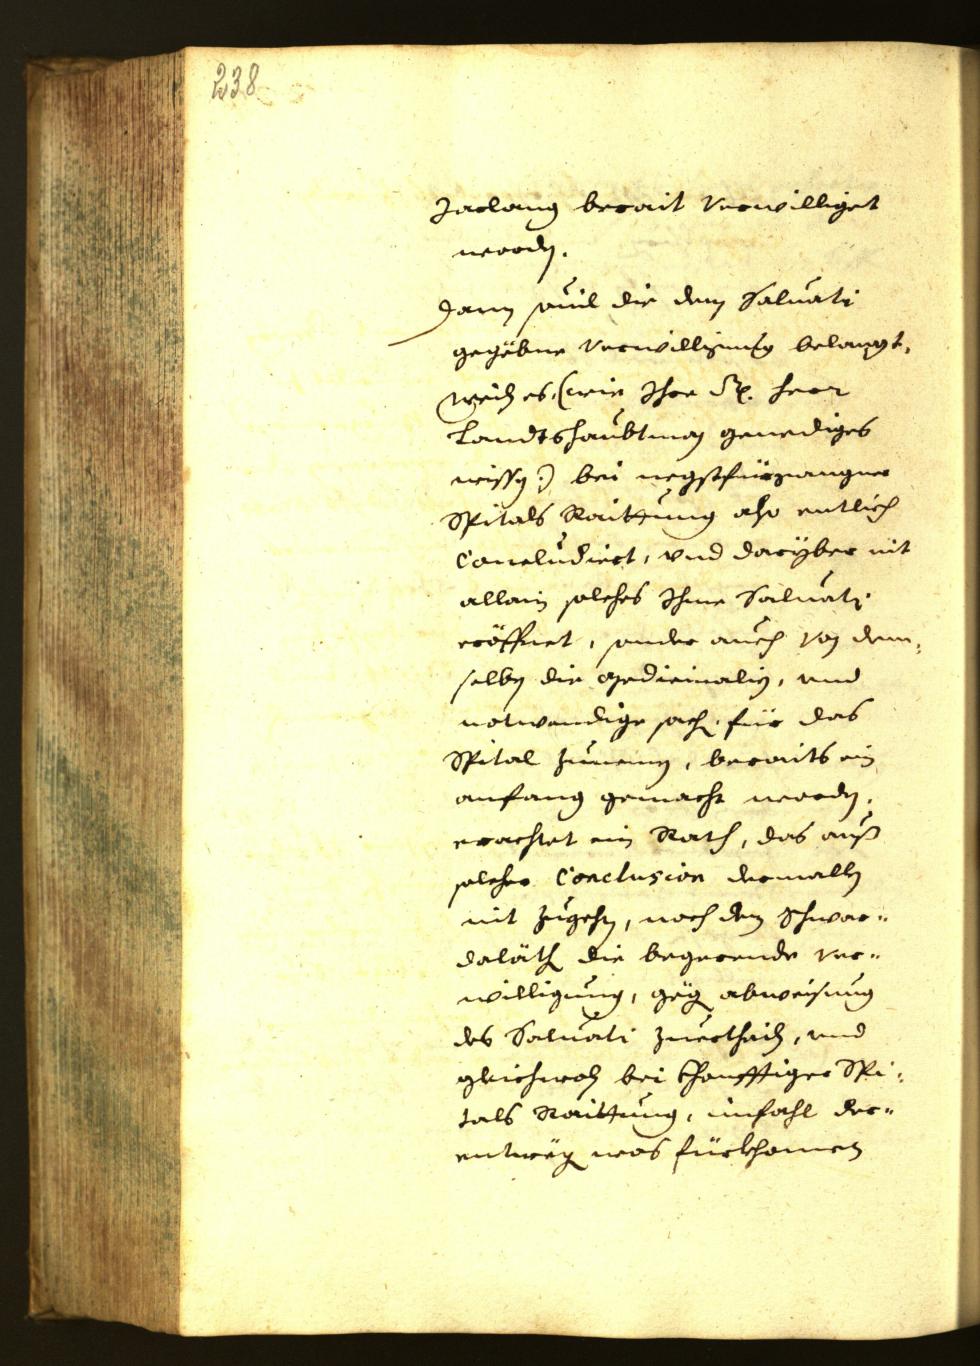 238
Jarlang berait verwilliget
worden.
Dann souil die dem Saluati
gegebne verwilligung belangt,
weil es, (wie Ihr Herr
Landtshaubtman genediges
wissen:) bei negstfürgangner
Spitals Raittung also entlich
Concludiert, vnd darÿber nit
allain solches Ihme Saluati
eröffnet, sonder auch von dem„
selben die Medicinalien, vnd
notwendige sachen für das
Spital zunemen, beraits ein
anfang gemacht worden,
erachtet ein Rath, das auß
solcher Conclusion dermallen
nit zugehen, noch dem Schwar„
die begerende ver„
willigung, gegen abweisung
des Saluati zuerthailen, vnd
gleichwol bei khonfftiger Spi„
tals Raittung, imfahl der„
entwegen was fürkhomen